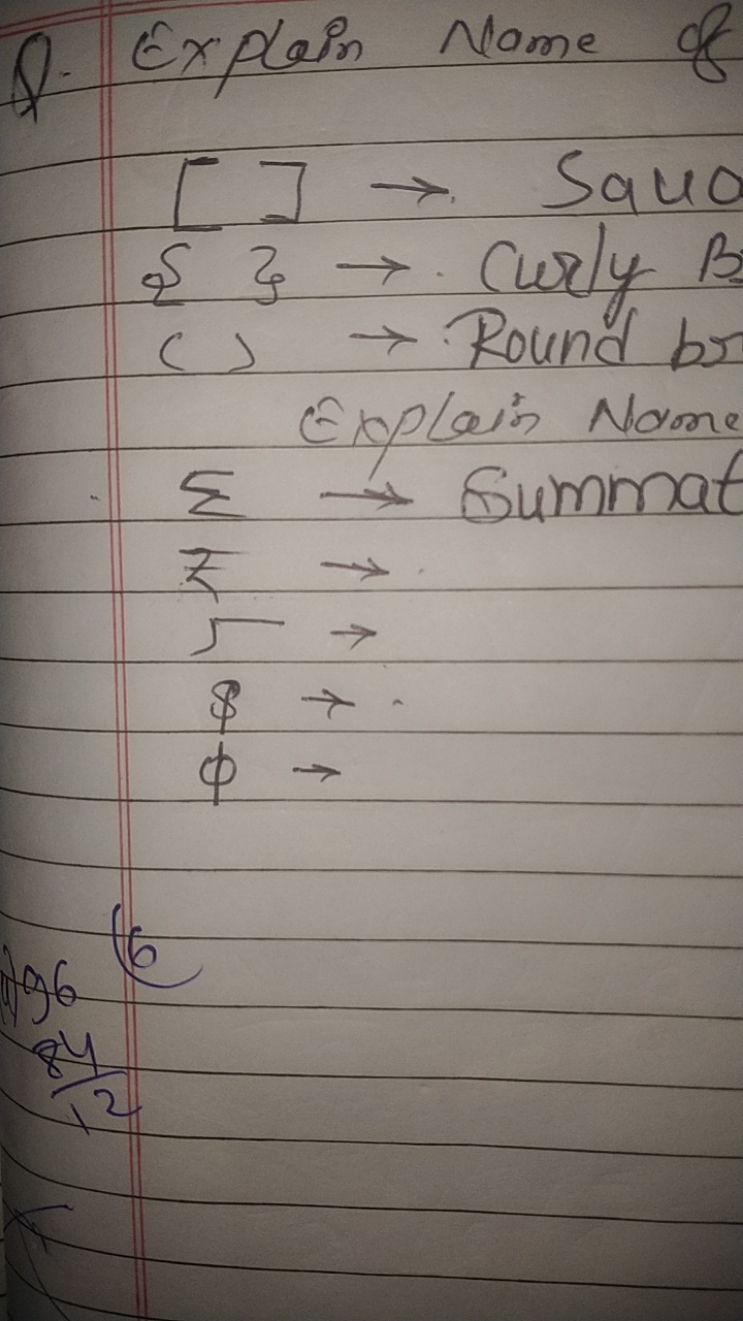 Q. Explain Name of
[ ] → Squa
{ } → Curly B
( ) → Round br
Explain Name
Σ → Summat
₹ →
√ →
$ →
φ →
6
96
84
12